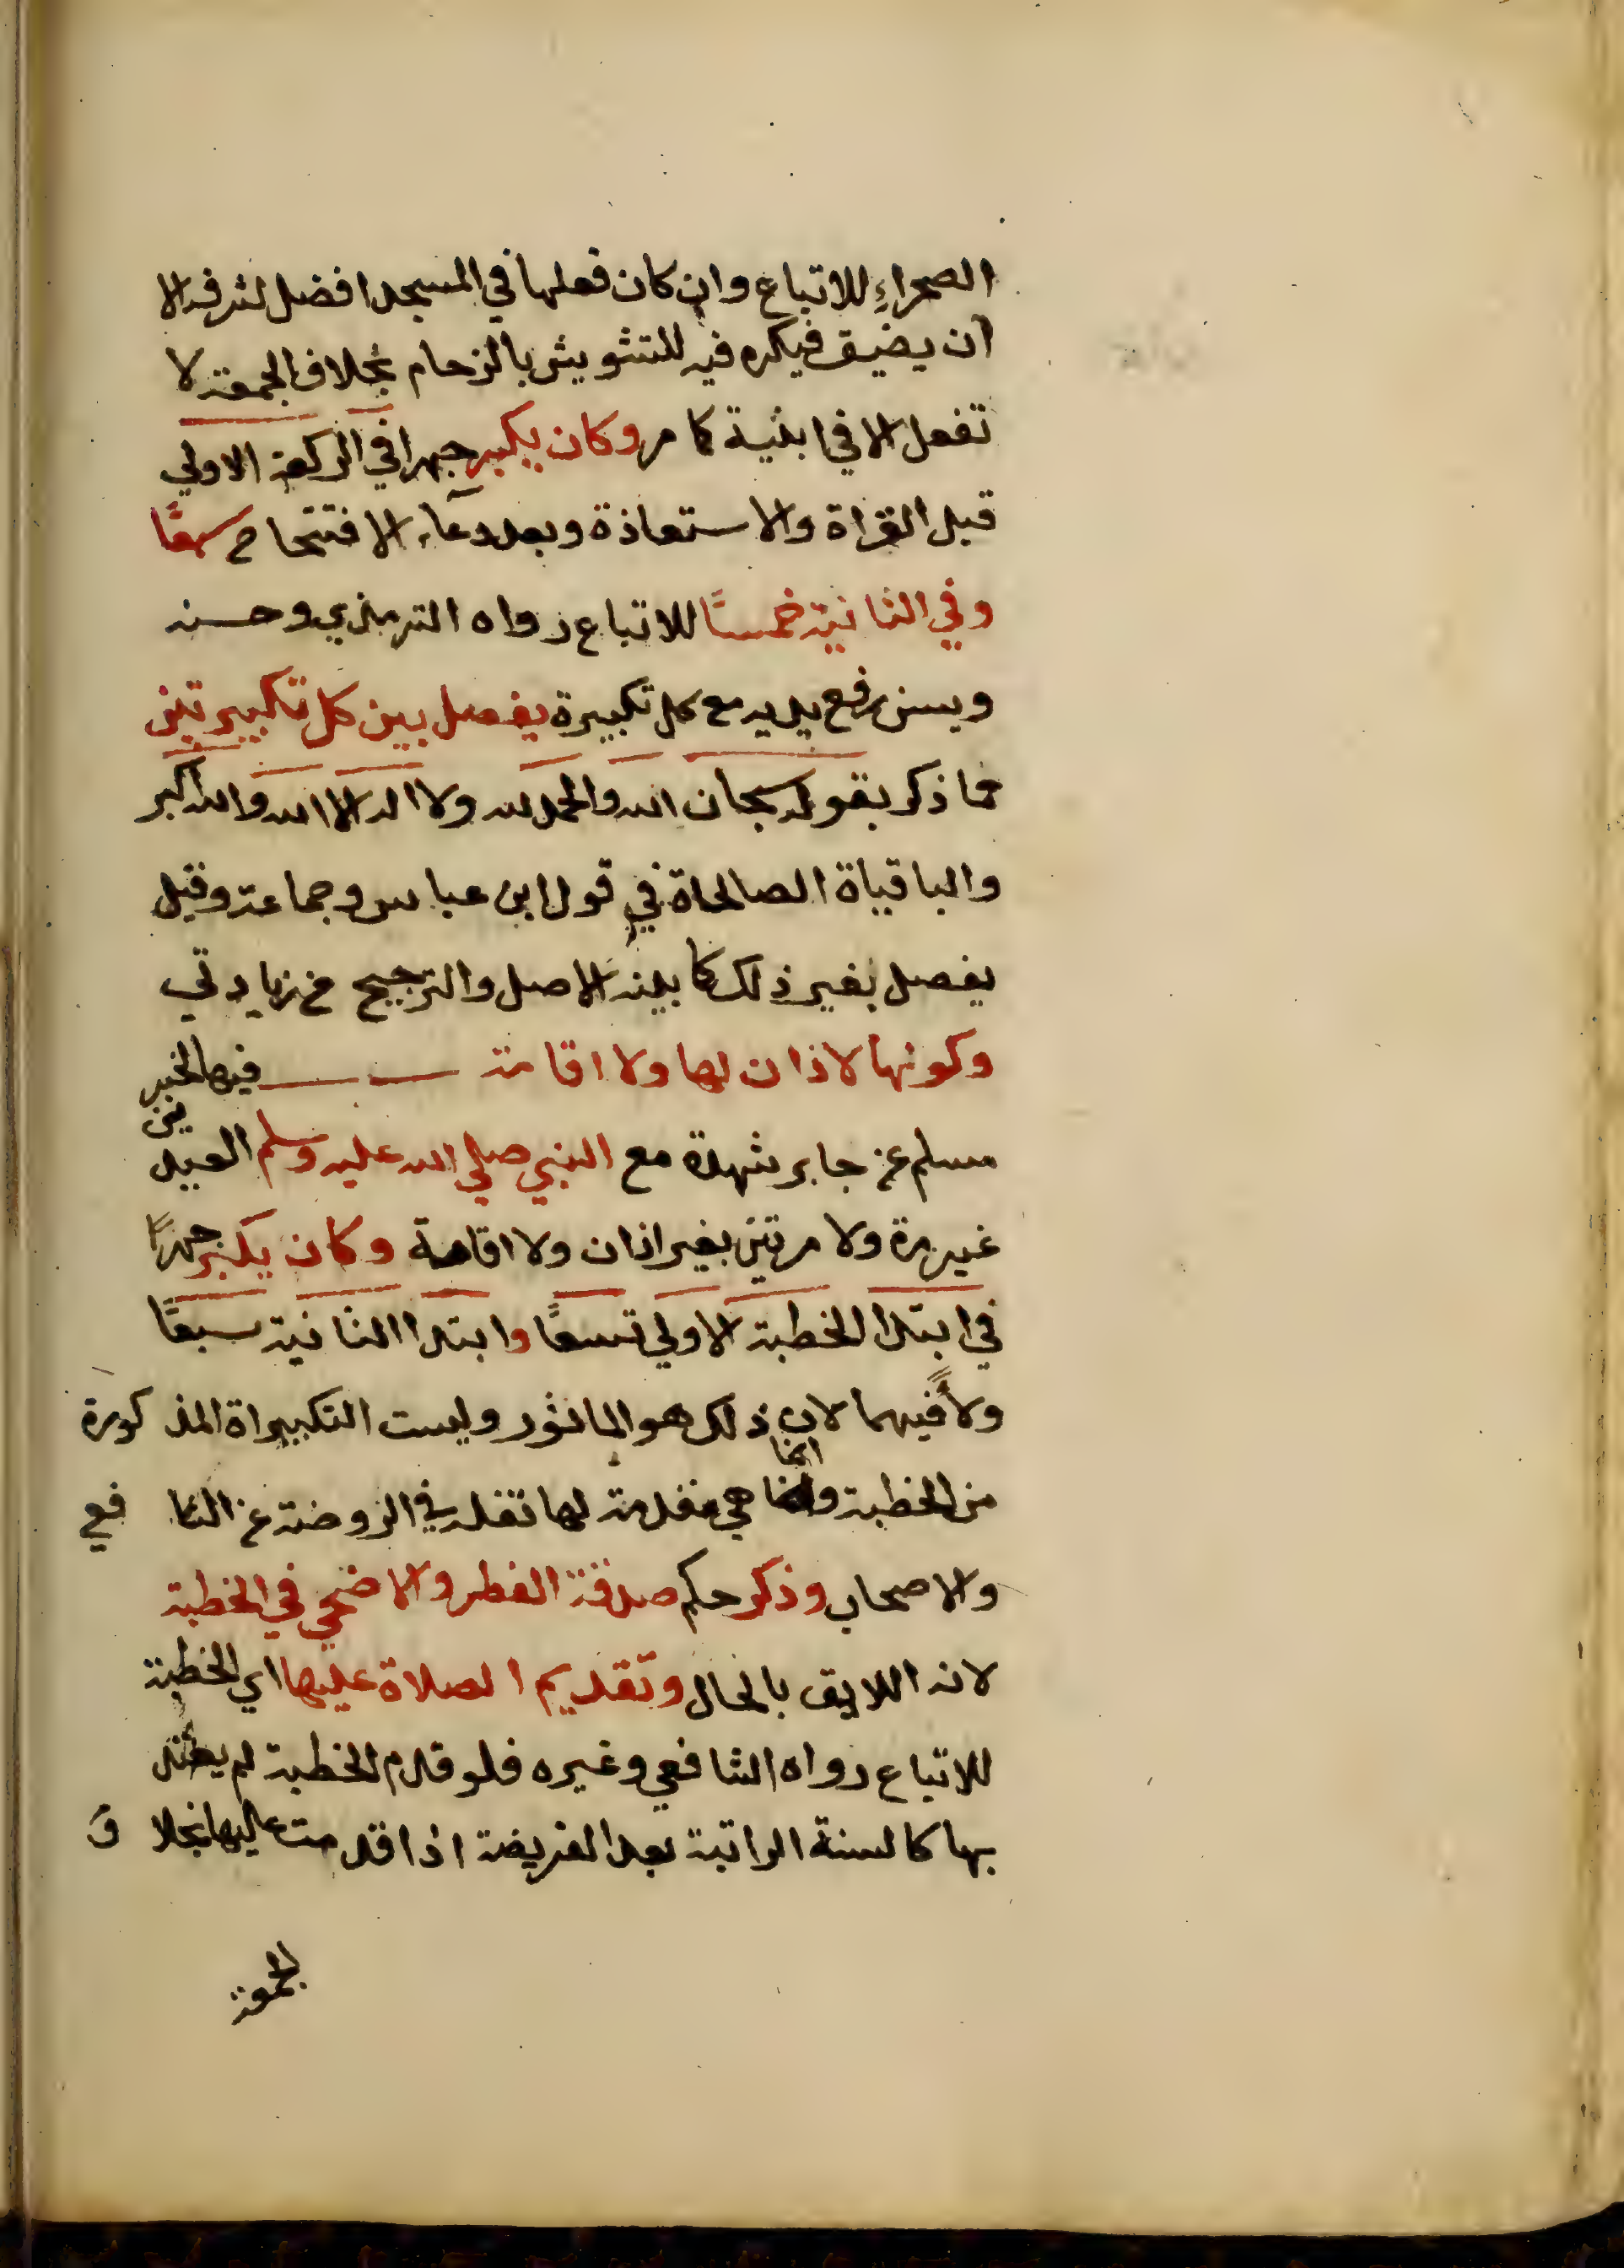 الصحراء للاتباع وان كان فعلها في المسجد افضل لشرفه الا
ان يضيق فيكره فيه للتشويش بالزحام بخلاف الجمعة لا
تفعل الا في ابنية كما مر وكان يكبر جهرا في الركعة الاولي
قبل القراة والاستعاذة وبعد دعآء الافتتاح سبعًا
وفي الثانية خمسًا للاتباع رواه الترمذي وحسنه
ويسن رفع يديه مع كل تكبيرة يفصل بين كل تكبيرتين
مما ذكر بقوله سبحان الله والحمد لله ولا اله الا الله والله اكبر
والباقياة الصالحاة في قول ابن عباس وجماعة وقيل
يفصل بغير ذلك كما بينه الاصل والترجيح من زيادتي
وكونها لا اذان لها ولا اقامة فيها لخبر
مسلم عن جابر شهدة مع النبي صلي الله عليه وسلم العيدين
غير مرة ولا مرتين بغير اذان ولا اقامة وكان يكبر جهرًا
في ابتدا الخطبة الاولي تسعًا وابتدا الثانية سبعًا
ولاً فيهما لان ذلك هو الماثور وليست التكبيراة المذكورة
من الخطبة وانما هي مقدمة لها نقله في الروضة عن الشافعي
والاصحاب وذكر حكم صدقة الفطر والاضحي في الخطبة
لانه اللايق بالحال وتقديم الصلاة عليها اي الخطبة
للاتباع رواه الشافعي وغيره فلو قدم الخطبة لم يعتد
بها كالسنة الراتبة بعد الفريضة اذا قدمت عليها بخلاف
الجمعة